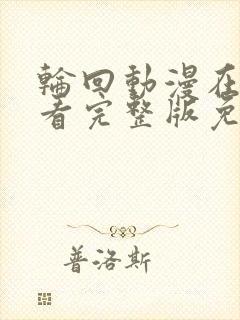 輪回動漫在
看完整版免
普洛斯